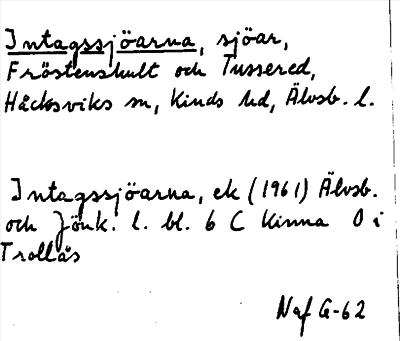 Intagssjöarna, sjöar,
Fröstenshult och Tussered,
Håcksviks sn, Kinds hd, Älvsb. l.
Intagssjöarna, ek (1961) Älvsb.
och Jönk. l. bl. 6 C Kinna O i
Trollås
Naf G-62